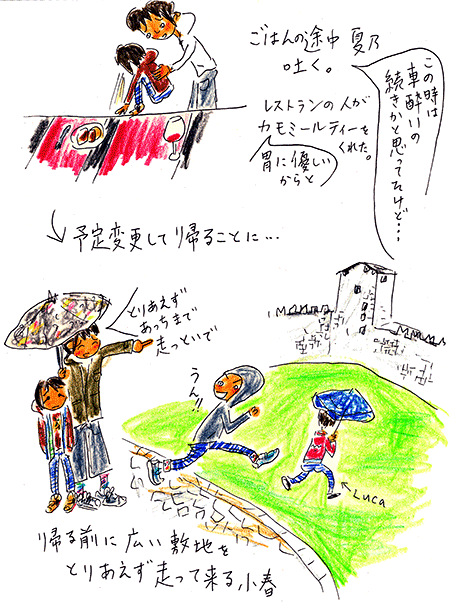 ごはんの途中 夏乃
吐く。
この時は
車酔いの
続きかと思ってたけど・・・
レストランの人が
カモミールティーを
くれた。
胃に優しい
からと
予定変更して帰ることに・・・
とりあえず
あっちまで
走っといで
うん!!
Luca
帰る前に広い敷地を
とりあえず走って来る小春